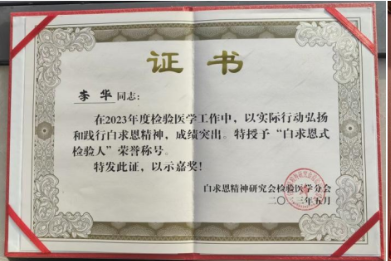 证书
李华同志:
在2023年度检验医学工作中，以实际行动弘扬
和践行白求恩精神，成绩突出。特授予“白求恩式
检验人”荣誉称号。
特发此证，以示嘉奖！
白求恩精神研究会检验医学分会
二〇二三年五月